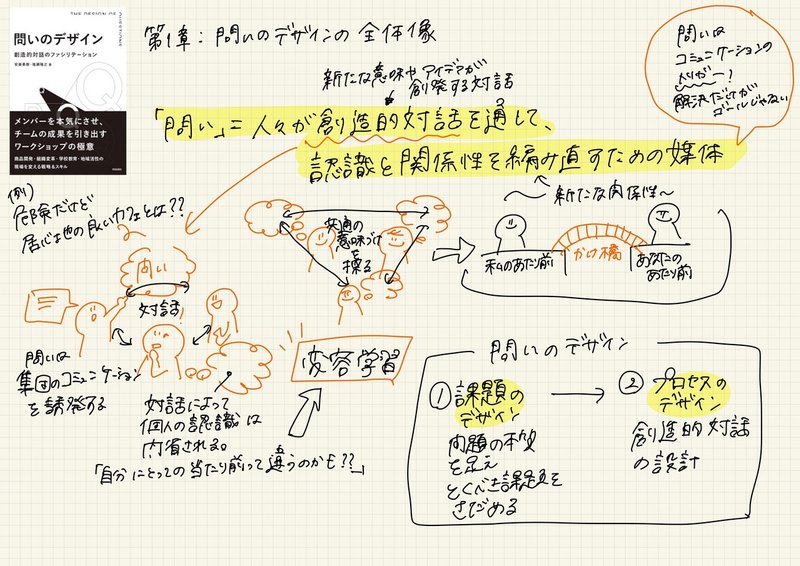 THE DESIGN OF
問いのデザイン
創造的対話のファシリテーション
安斎勇樹・塩瀬隆之 著
メンバーを本気にさせ、
チームの成果を引き出す
ワークショップの極意
商品開発・組織変革・学校教育・地域活性の
現場を変える戦略&スキル
第1章：問いのデザインの全体像
新たな意味やアイデアが
創発する対話
「問い」＝人々が創造的対話を通して、
認識と関係性を編み直すための媒体
問いは
コミュニケーションの
トリガー！
解決だけが
ゴールじゃない
新たな関係性〜
例）
危険だけど
居心地の良いカフェとは??
問い
対話
問いは
集団のコミュニケーション
を誘発する
対話によって
個人の認識は
内省される。
「自分にとっての当たり前って違うのかも??」
共通の
意味づけ
を探る
変容学習
私のあたり前
かけ橋
あなたの
あたり前
問いのデザイン
① 課題の
デザイン
問題の本質
を捉え
とくべき課題を
さだめる
② プロセスの
デザイン
創造的対話
の設計